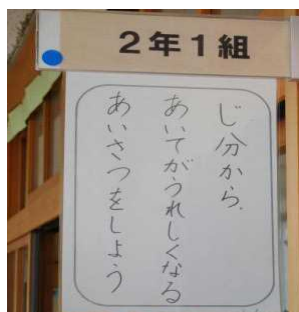 2年1組
じ分から.
あいてがうれしくなる
あいさつをしよう